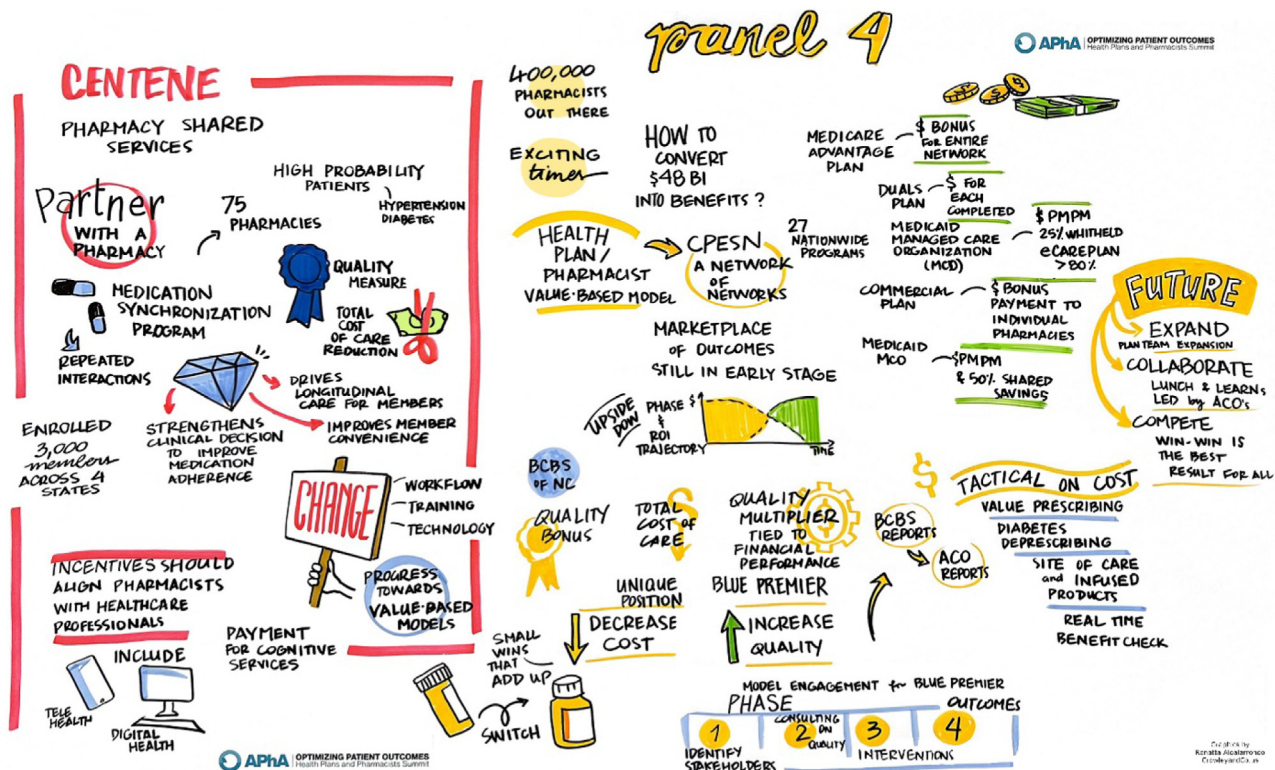 panel 4
APhA
OPTIMIZING PATIENT OUTCOMES
Health Plans and Pharmacists Summit
CENTENE
PHARMACY SHARED
SERVICES
Partner
WITH A
PHARMACY
75
PHARMACIES
HIGH PROBABILITY
PATIENTS
HYPERTENSION
DIABETES
MEDICATION
SYNCHRONIZATION
PROGRAM
REPEATED
INTERACTIONS
QUALITY
MEASURE
TOTAL
COST
OF CARE
REDUCTION
DRIVES
LONGITUDINAL
CARE FOR MEMBERS
IMPROVES MEMBER
CONVENIENCE
STRENGTHENS
CLINICAL DECISION
TO IMPROVE
MEDICATION
ADHERENCE
ENROLLED
3,000
members
ACROSS 4
STATES
CHANGE
WORKFLOW
TRAINING
TECHNOLOGY
PROGRESS
TOWARDS
VALUE-BASED
MODELS
INCENTIVES SHOULD
ALIGN PHARMACISTS
WITH HEALTHCARE
PROFESSIONALS
INCLUDE
TELE
HEALTH
DIGITAL
HEALTH
PAYMENT
FOR COGNITIVE
SERVICES
APhA
OPTIMIZING PATIENT OUTCOMES
Health Plans and Pharmacists Summit
400,000
PHARMACISTS
OUT THERE
EXCITING
times
HOW TO
CONVERT
$48 BI
INTO BENEFITS?
HEALTH
PLAN/
PHARMACIST
VALUE-BASED MODEL
CPESN
A NETWORK
OF
NETWORKS
27
NATIONWIDE
PROGRAMS
MARKETPLACE
OF OUTCOMES
STILL IN EARLY STAGE
UPSIDE
DOW
PHASE $
&
ROI
TRAJECTORY
TIME
MEDICARE
ADVANTAGE
PLAN
$ BONUS
FOR ENTIRE
NETWORK
DUALS
PLAN
$ FOR
EACH
COMPLETED
MEDICAID
MANAGED CARE
ORGANIZATION
(MCO)
$ PMPM
25% WHITHELD
eCAREPLAN
> 80%
COMMERCIAL
PLAN
$ BONUS
PAYMENT TO
INDIVIDUAL
PHARMACIES
MEDICAID
MCO
$PMPM
& 50% SHARED
SAVINGS
FUTURE
EXPAND
PLAN TEAM EXPANSION
COLLABORATE
LUNCH & LEARNS
LED by ACO's
COMPETE
WIN-WIN IS
THE BEST
RESULT FOR ALL
BCBS
OF NC
QUALITY
BONUS
TOTAL
COST OF
CARE
$
QUALITY
MULTIPLIER
TIED TO
FINANCIAL
PERFORMANCE
$
UNIQUE
POSITION
DECREASE
COST
BLUE PREMIER
INCREASE
QUALITY
SMALL
WINS
THAT
ADD UP
SWITCH
BCBS
REPORTS
ACO
REPORTS
$
TACTICAL ON COST
VALUE PRESCRIBING
DIABETES
DEPRESCRIBING
SITE OF CARE
and INFUSED
PRODUCTS
REAL TIME
BENEFIT CHECK
MODEL ENGAGEMENT for BLUE PREMIER
PHASE
OUTCOMES
1
IDENTIFY
STAKEHOLDERS
2
CONSULTING
ON
QUALITY
3
INTERVENTIONS
4
Graphics by